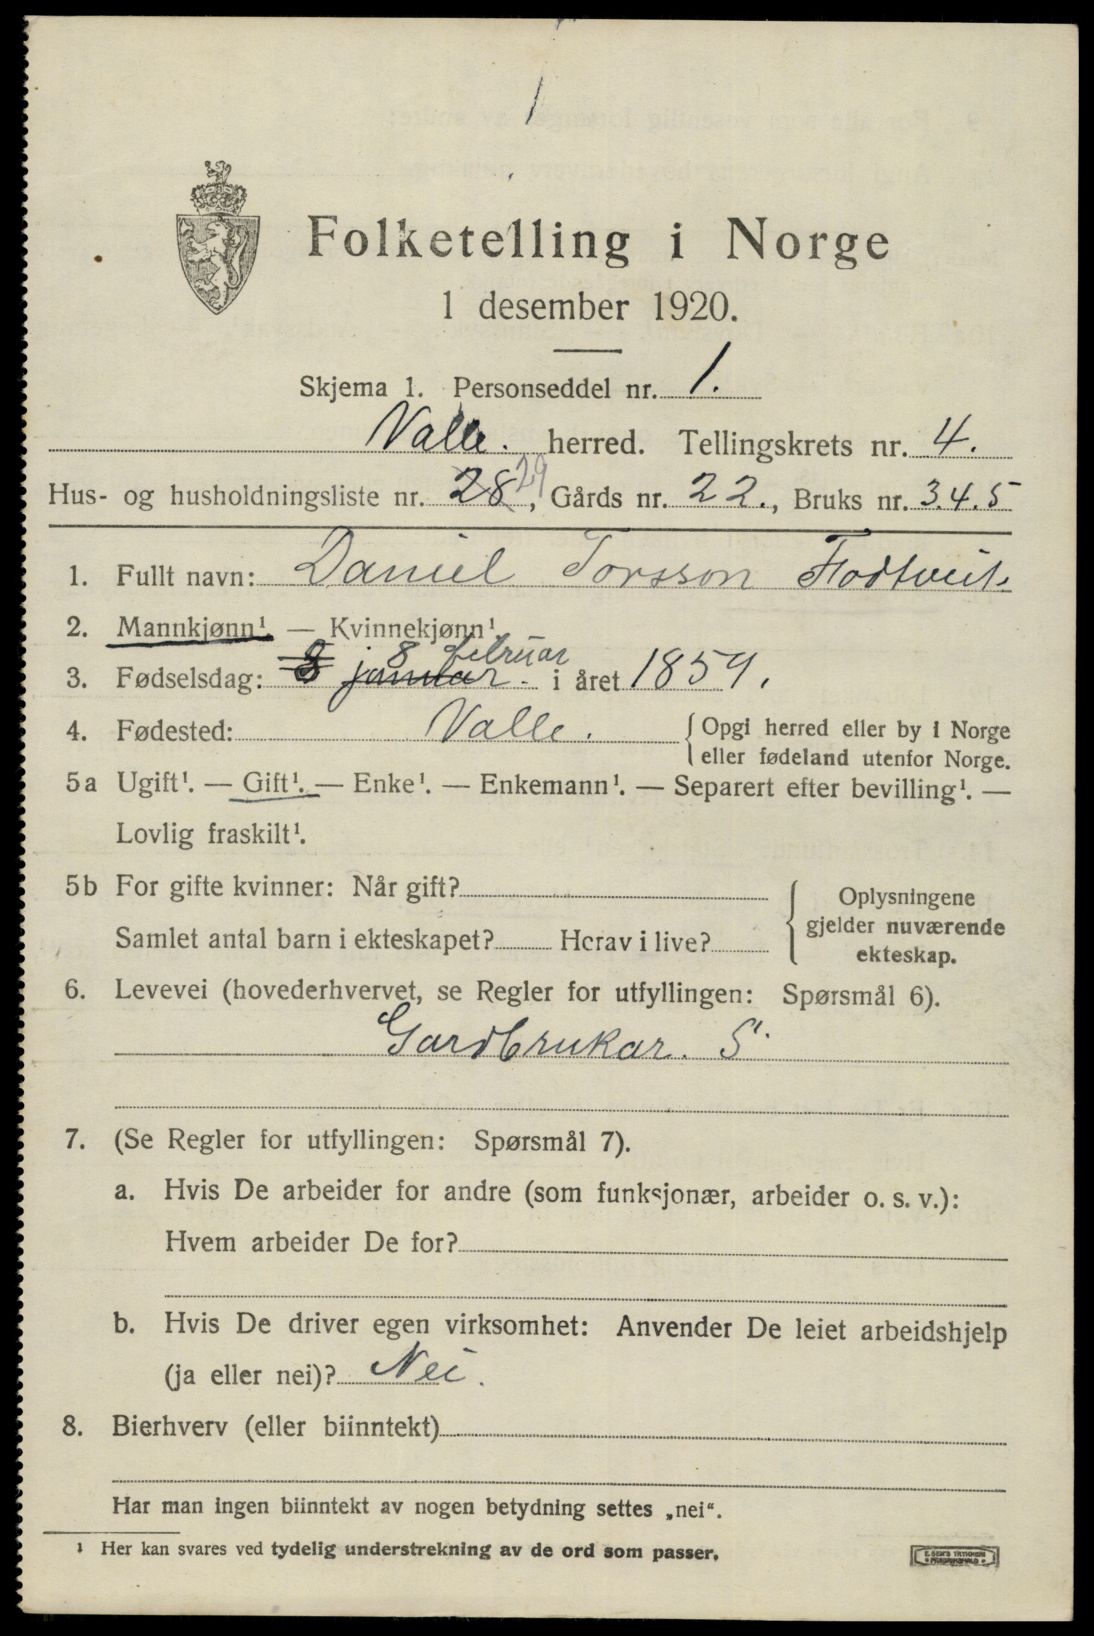 1
Folketelling i Norge
1 desember 1920.
Skjema 1. Personseddel nr. 1.
Valle. herred. Tellingskrets nr. 4.
Hus- og husholdningsliste nr. 28 29, Gårds nr. 22., Bruks nr. 3.4.5
1. Fullt navn: Daniel Torsson Flodtveit.
2. Mannkjønn¹ — Kvinnekjønn¹.
8 februar
3. Fødselsdag: 8 januar. i året 1859.
4. Fødested: Valle. { Opgi herred eller by i Norge
eller fødeland utenfor Norge.
5a Ugift¹. — Gift¹. — Enke¹. — Enkemann¹. — Separert efter bevilling¹. —
Lovlig fraskilt¹.
5b For gifte kvinner: Når gift? { Oplysningene
gjelder nuværende
ekteskap.
Samlet antal barn i ekteskapet? Herav i live?
6. Levevei (hovederhvervet, se Regler for utfyllingen: Spørsmål 6).
Gardbrukar. S.
7. (Se Regler for utfyllingen: Spørsmål 7).
a. Hvis De arbeider for andre (som funksjonær, arbeider o. s. v.):
Hvem arbeider De for?
b. Hvis De driver egen virksomhet: Anvender De leiet arbeidshjelp
(ja eller nei)? Nei.
8. Bierhverv (eller biinntekt)
Har man ingen biinntekt av nogen betydning settes „nei“.
¹ Her kan svares ved tydelig understrekning av de ord som passer.